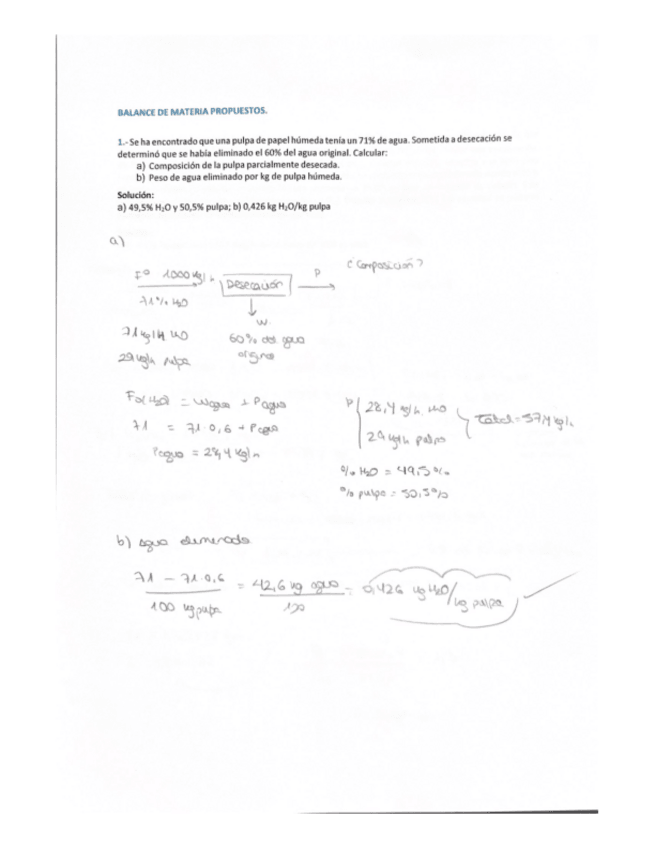 BALANCE DE MATERIA PROPUESTOS.
1.- Se ha encontrado que una pulpa de papel húmeda tenía un 71% de agua. Sometida a desecación se
determinó que se había eliminado el 60% del agua original. Calcular:
a) Composición de la pulpa parcialmente desecada.
b) Peso de agua eliminado por kg de pulpa húmeda.
Solución:
a) 49,5% H₂O y 50,5% pulpa; b) 0,426 kg H₂O/kg pulpa
a)
¿Composición?
Fº 1000 kg/h
Desecación
P
71% H₂O
W
71 kg/h H₂O
60% del agua
29 kg/h pulpa
original
Fo(H₂O) = Wagua + Pagua
71 = 71·0,6 + Pagua
Pagua = 28,4 kg/h
P
28,4 kg/h H₂O
29 kg/h pulpa
Total = 57,4 kg/h
% H₂O = 49,5%
% pulpa = 50,5%
b) agua eliminada
71 - 71·0,6 = 42,6 kg agua = 0,426 kg H₂O/kg pulpa
100 kg pulpa 100